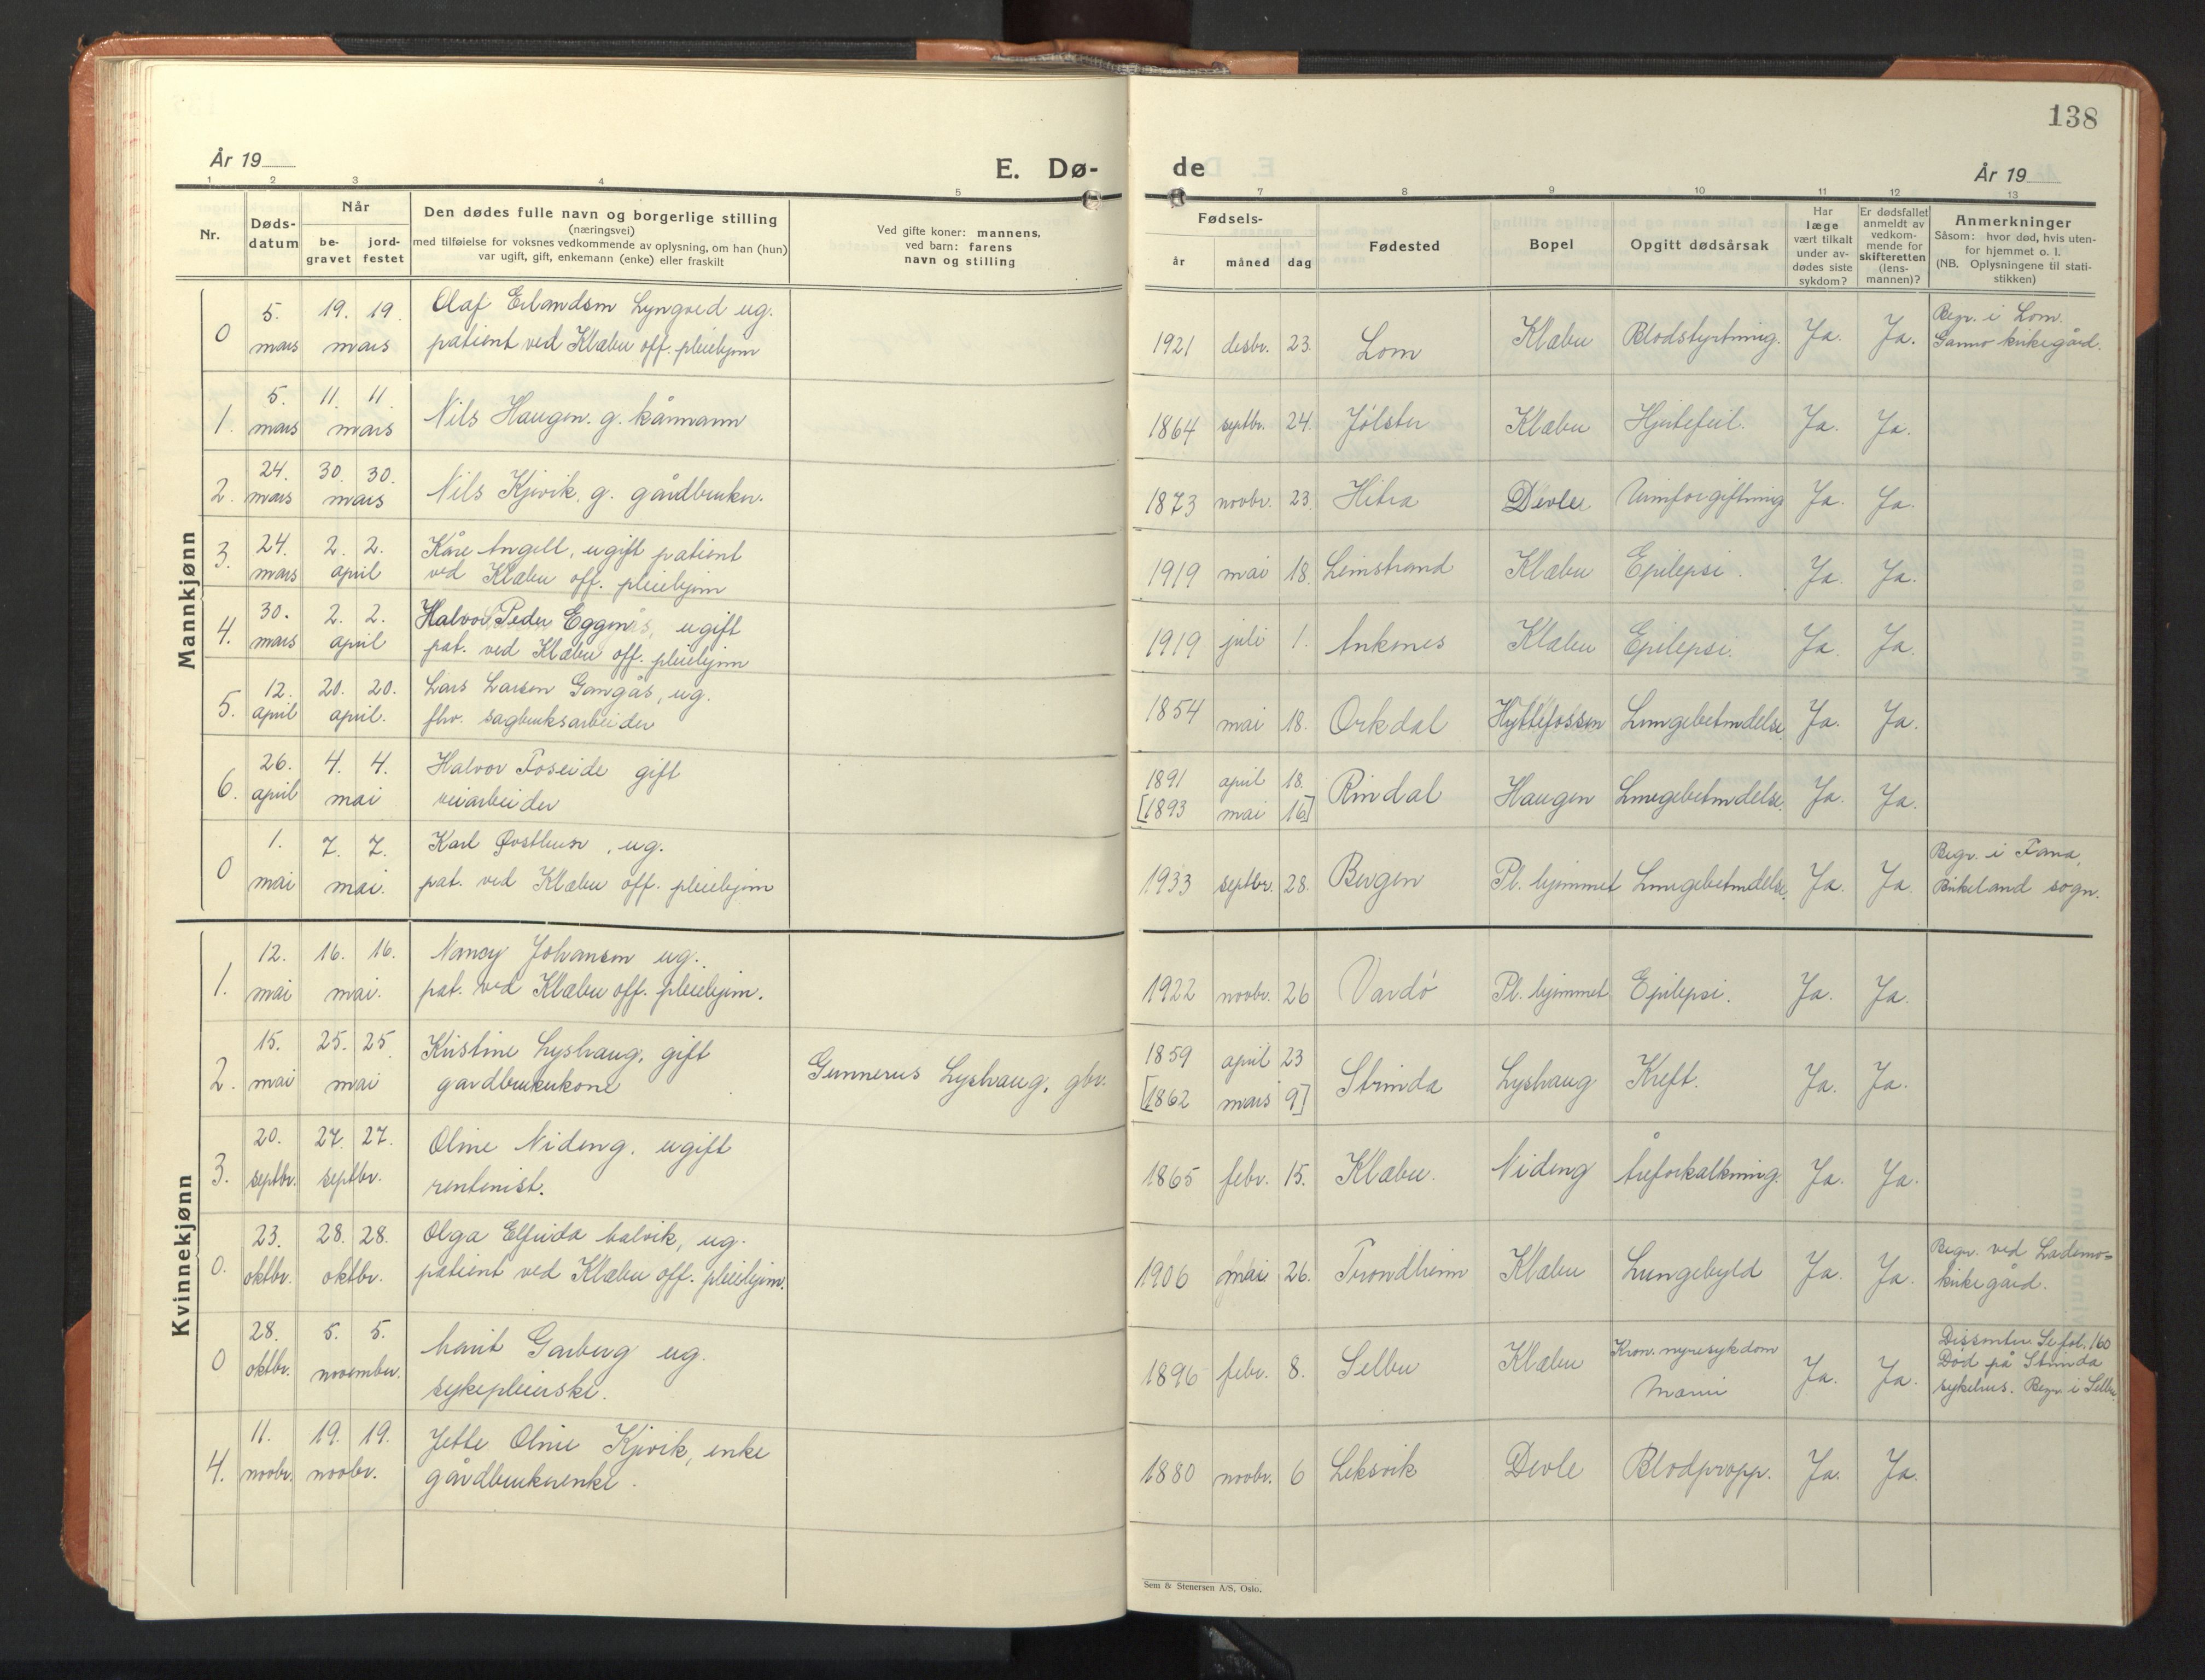 138
År 19
E. Dø-
de
År 19
1 2 3 4 5
7 8 9 10 11 12 13
Nr.
Døds-
datum
Når
be-
gravet
jord-
festet
Den dødes fulle navn og borgerlige stilling
(næringsvei)
med tilføielse for voksnes vedkommende av oplysning, om han (hun)
var ugift, gift, enkemann (enke) eller fraskilt
Ved gifte koner: mannens,
ved barn: farens
navn og stilling
Fødsels-
år måned dag
Fødested
Bopel
Opgitt dødsårsak
Har
læge
vært tilkalt
under av-
dødes siste
sykdom?
Er dødsfallet
anmeldt av
vedkom-
mende for
skifteretten
(lens-
mannen)?
Anmerkninger
Såsom: hvor død, hvis uten-
for hjemmet o. l.
(NB. Oplysningene til stati-
stikken)
Mannkjønn
0 5. mars 19. 19. mars
Olaf Erlandsen Lyngved ug.
patient ved Klæbu off. pleiehjem
1921 desbr. 23. Lom Klæbu Blodstyrtning. Ja. Ja.
Begr. i Lom.
Garmo kirkegård.
1. 5. mars 11. 11. mars
Nils Haugen. g. kårmann
1864 septbr. 24. Jølster Klæbu Hjertefeil. Ja. Ja.
2. 24. mars 30. 30. mars
Nils Kjervik. g. gårdbruker.
1873 novbr. 23. Hitra Devle Urinforgiftning Ja. Ja.
3. 24. mars 2. 2. april
Kåre Angell, ugift patient
ved Klæbu off. pleiehjem
1919 mai 18. Leinstrand Klæbu Epilepsi. Ja. Ja.
4. 30. mars 2. 2. april
Halvor Peder Eggen, ugift
pat. ved Klæbu off. pleiehjem
1919 juli 1. Ankenes Klæbu Epilepsi. Ja. Ja.
5. 12. april 20. 20. april.
Lars Larsen Gangås, ug.
fhv. sagbruksarbeider
1854 mai 18. Orkdal Hyttefossen Lungebetendelse Ja. Ja.
6. 26. april 4. 4. mai
Halvor Foseide gift
veiarbeider
1891 april 18.
[1893 mai 16]
Rindal Haugen Lungebetendelse. Ja. Ja.
0 1. mai 7. 7. mai.
Karl Østhus, ug.
pat. ved Klæbu off. pleiehjem
1933 septbr. 28. Bergen Pl. hjemmet Lungebetendelse. Ja. Ja.
Begr. i Fana,
Birkeland sogn.
Kvinnekjønn
1. 12. mai 16. 16. mai.
Nancy Johansen ug.
pat. ved Klæbu off. pleiehjem.
1922 novbr. 26 Vardö Pl. hjemmet Epilepsi. Ja. Ja.
2. 15. mai 25. 25. mai
Kristine Lyshaug, gift
gardbrukerkone
Gunnerus Lyshaug, gbr.
1859 april 23
[1862 mars 9]
Strinda Lyshaug Kreft. Ja. Ja.
3. 20. septbr. 27. 27. septbr.
Oline Nideng, ugift
rentenist.
1865 febr. 15. Klæbu. Nideng Åreforkalkning. Ja. Ja.
0. 23. oktbr. 28. 28. oktbr.
Olga Elfrida Malvik, ug.
patient ved Klæbu off. pleiehjem.
1906 mai 26. Trondheim Klæbu Lungebyld Ja. Ja.
Begr. ved Lademo-
kirkegård.
0 28. oktbr. 5. 5. november.
Marit Garberg ug.
sykepleierske.
1896 febr. 8. Selbu Klæbu Kron. nyresykdom
Ja. Ja.
Dissenter. Se fol. 160
Død på Strinda
sykehus. Begr. i Selbu.
4. 11. novbr. 19. 19. novbr.
Jette Oline Kjervik, enke
gårdbrukerenke.
1880 novbr. 6 Leksvik Devle Blodpropp. Ja. Ja.
Sem & Stenersen A/S, Oslo.